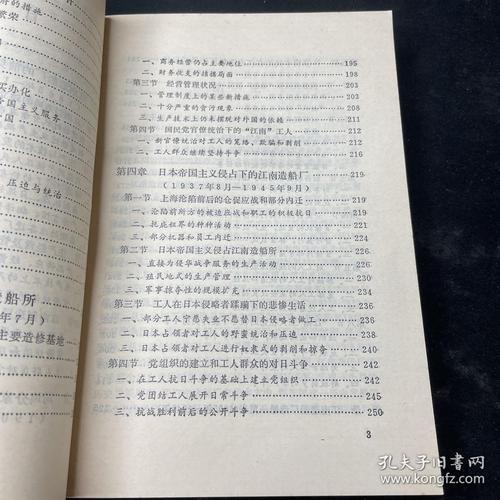 府的措施
繁荣
买办化
帝国主义服务
国
压迫与统治
船所
年7月)
主要造修基地
一、商务经营仍占主要地位 195
二、财务收支的拮据局面 198
第三节 经营管理状况 203
一、管理制度上的某些新措施 203
二、十分严重的贪污现象 208
三、生产技术上仍未摆脱对外国的依赖 211
第四节 国民党官僚统治下的“江南”工人 212
一、新官僚统治对工人的笼络、欺骗和剥削 212
二、工人群众继续坚持斗争 216
第四章 日本帝国主义侵占下的江南造船厂 221
(1937年8月—1945年9月)
第一节 上海沦陷前后的仓促应战和部分内迁 221
一、沦陷前所方的被迫应战和职工的积极抗日 221
二、托庇租界的种种活动 223
三、部分机器和员工内迁 224
第二节 日本帝国主义侵占江南造船所 227
一、直接为侵华战争服务的生产活动 227
二、殖民地式的生产管理 230
三、军事掠夺性的规模扩充 234
第三节 工人在日本侵略者蹂躏下的悲惨生活 236
一、部分工人宁愿失业不愿替日本侵略者做工 236
二、日本占领者对工人的野蛮统治和压迫 238
三、日本占领者对工人进行奴隶式的剥削和掠夺 240
第四节 党组织的建立和工人群众的对日斗争 242
一、在工人抗日斗争的基础上建立党组织 242
二、党团结工人展开日常斗争 245
三、抗战胜利前后的公开斗争 250
3
孔夫子旧书网
www.kongfz.com